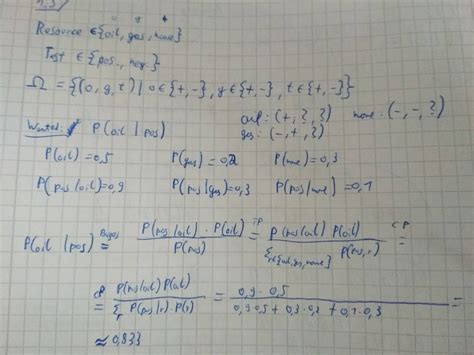 o g t
Resource ∈{oil, gas, none}
Test ∈ {pos., neg.}
Ω = {(o, g, t) | o∈{+,-}, g∈{+,-}, t∈{+,-}}
oil: (+, ?, ?) none: (-, -, ?)
gas: (-, +, ?)
Wanted: P(oil | pos)
P(oil) = 0,5 P(gas) = 0,2 P(none) = 0,3
P(pos|oil) = 0,9 P(pos|gas) = 0,3 P(pos|none) = 0,1
P(oil |pos) Bayes = P(pos|oil) · P(oil) / P(pos) TP = P(pos|oil) P(oil) / Σ r∈{oil,gas,none} P(pos, r) CP =
CP = P(pos|oil) P(oil) / Σr P(pos|r) · P(r) = 0,9 · 0,5 / 0,9 0,5 + 0,3 · 0,2 + 0,1 · 0,3 =
≈ 0,833